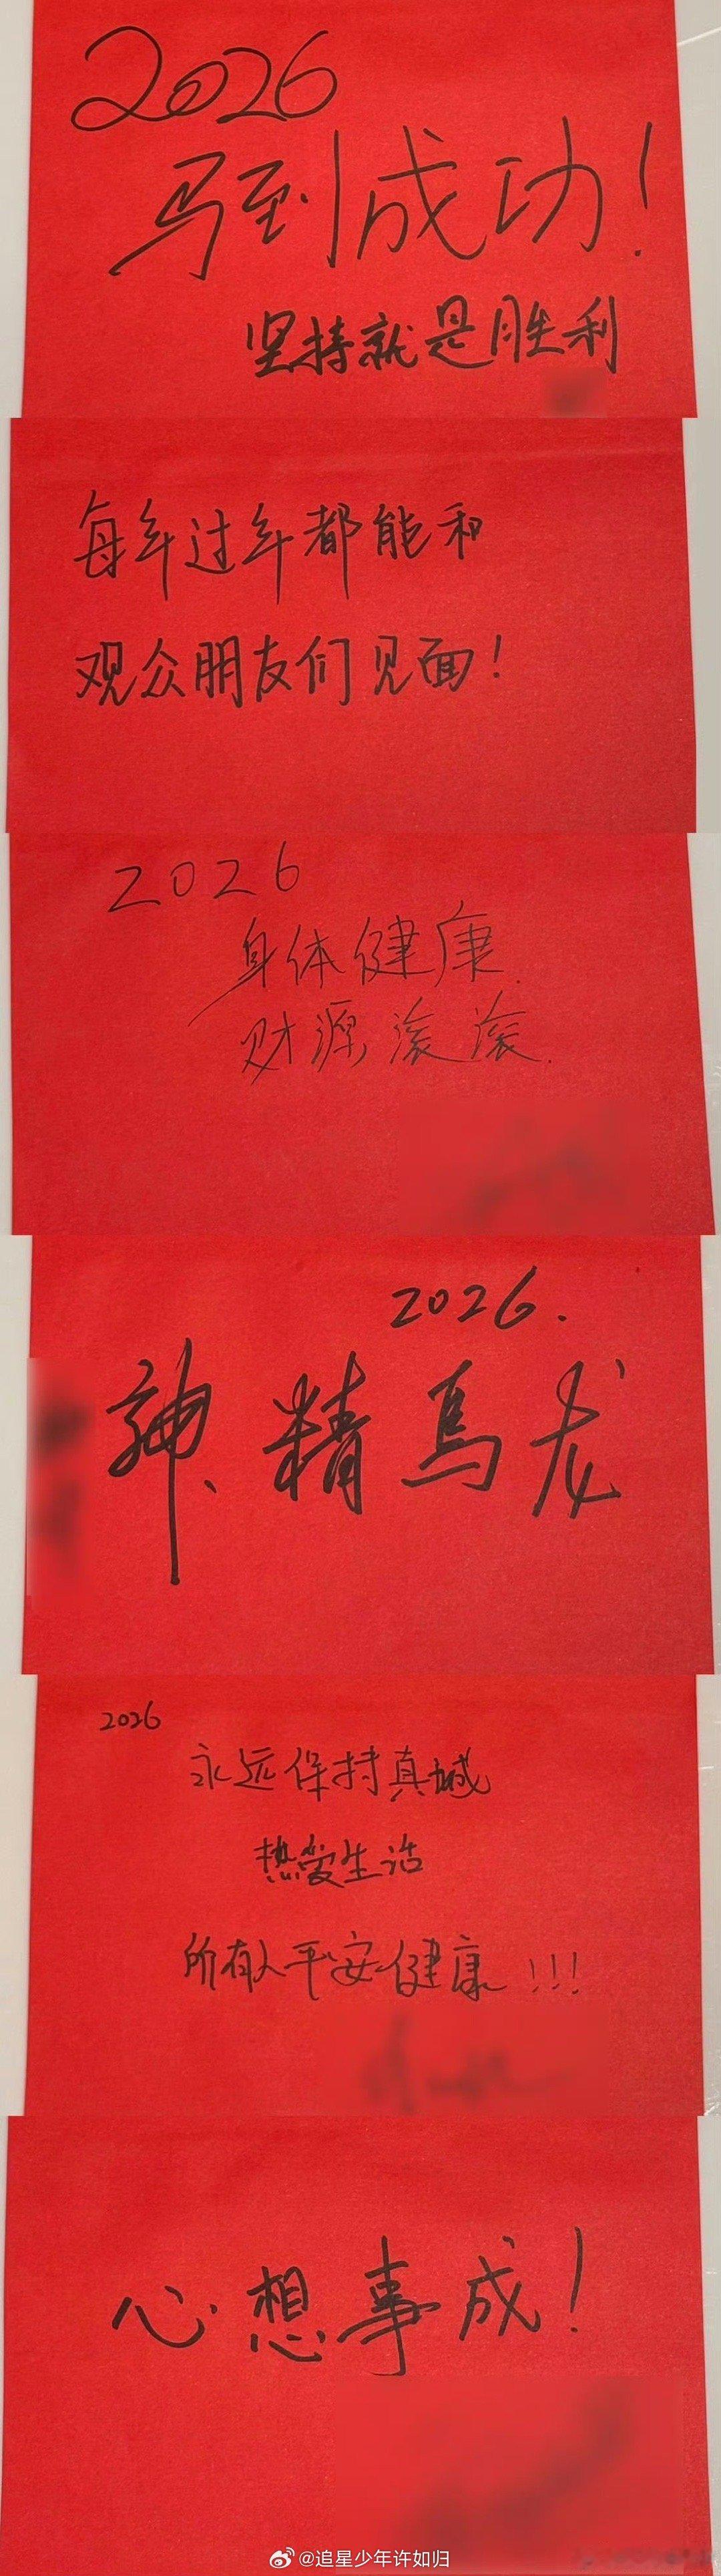 2026
马到成功！
坚持就是胜利
每年过年都能和
观众朋友们见面！
2026
身体健康
财源滚滚.
2026.
神精馬龙
2026
永远保持真诚
热爱生活
所有人平安健康！！！
心想事成！
@追星少年许如归